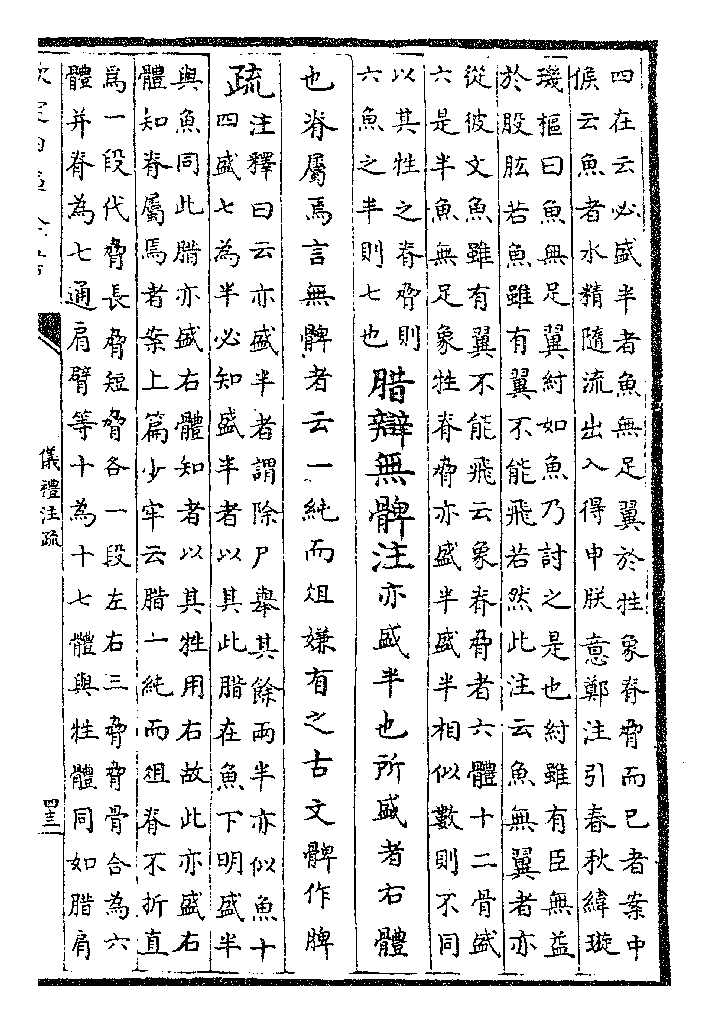 四在云必盛半者魚無足翼於牲象脊脅而已者案中
侯云魚者水精隨流出入得申朕意鄭注引春秋緯璇
璣樞曰魚無足翼紂如魚乃討之是也紂雖有臣無益
於股肱若魚雖有翼不能飛若然此注云魚無翼者亦
從彼文魚雖有翼不能飛云象脊脅者六體十二骨盛
六是半魚無足象牲脊脅亦盛半盛半相似數則不同
以其牲之脊脅則
六魚之半則七也
腊辯無髀注亦盛半也所盛者右體
也脊屬焉言無髀者云一純而俎嫌有之古文髀作脾
疏
注釋曰云亦盛半者謂除尸舉其餘兩半亦似魚十
四盛七為半必知盛半者以其此腊在魚下明盛半
與魚同此腊亦盛右體知者以其牲用右故此亦盛右
體知脊屬焉者案上篇少牢云腊一純而俎脊不折直
爲一段代脅長脅短脅各一段左右三脅脅骨合為六
體并脊為七通肩臂等十為十七體與牲體同如腊肩
儀禮注疏
四三